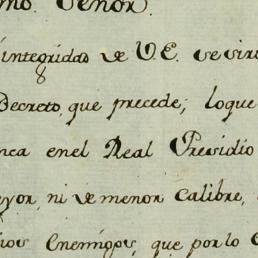 mo. Señor.
integridad de V.E. se sir
Decreto, que precede; loque
nca enel Real Presidio
yor, ni de menor Calibre,
ios Enemigos, que por lo